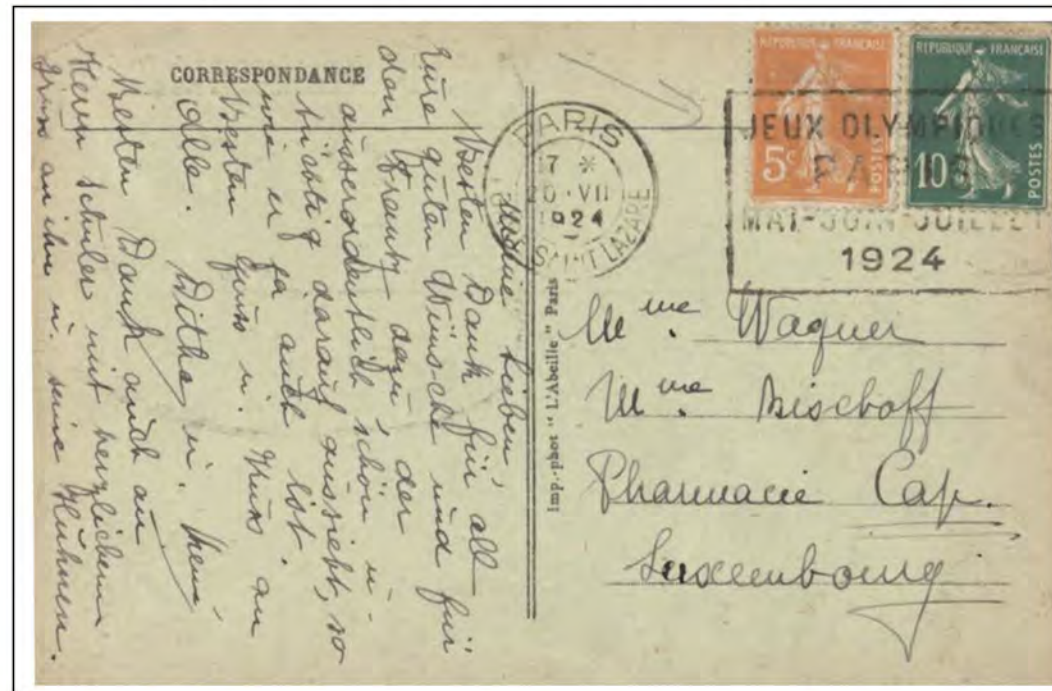 CORRESPONDANCE
Meine Lieben,
Besten Dank für all
Eure guten Wünsche und für
den dazu, der
ausserordentlich schön u.
tüchtig darauf aussieht, so
wie er ja auch ist.
Besten Gruss u. Kuss an
alle. Ditha u. René
Besten Dank auch an
Herrn Schuler mit herzlichem
Gruss an ihn u. seine
Imp.-phot "L'Abeille" Paris
PARIS
17 *
20 -VII
1924
SAINT LAZARE
REPUBLIQUE FRANÇAISE
5c
POSTES
REPUBLIQUE FRANÇAISE
10c
POSTES
JEUX OLYMPIQUES
PARIS
MAI-JUIN-JUILLET
1924
Mme. Wagner
Mme. Bischoff
Pharmacie Cap.
Luxembourg